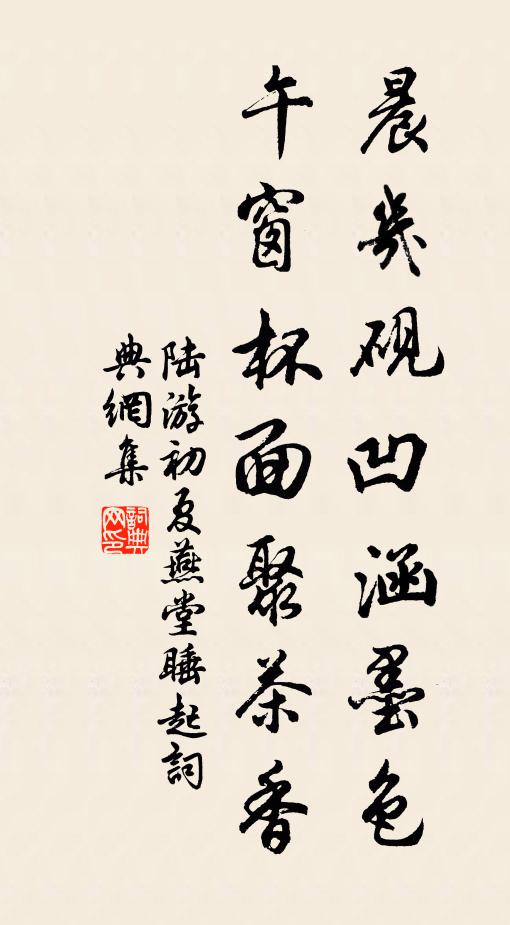 晨几硯凹涵墨色
午窗杯面聚茶香
陆游初夏燕堂睡起詞
典網集
詞典
网印